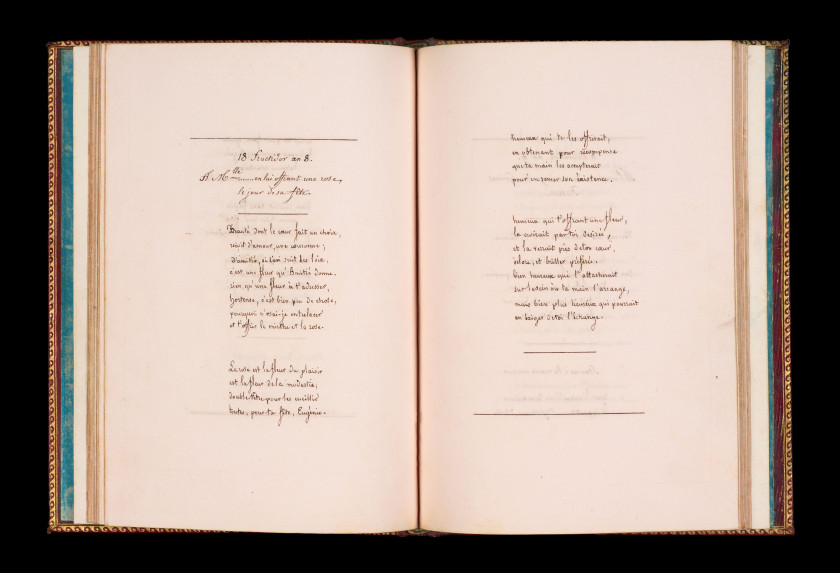 18 Fructidor an 8.
A Mlle ...... en lui offrant une rose,
le jour de sa fête.
Beauté dont le cœur fait un choix,
reçoit d'amour, une couronne;
d'amitié, si l'on suit les loix,
c'est une fleur qu'Amitié donne.
rien qu'une fleur à t'adresser,
hortense, c'est bien peu de chose,
pourquoi n'osai-je entrelacer
et t'offrir le mirthe et la rose.
La rose est la fleur du plaisir
est la fleur de la modestie;
double titre pour les cueillir
toutes, pour ta fête, Eugénie.
heureux qui te les offrirait,
en obtenant pour récompense
que ta main les accepterait
pour en semer son existence.
heureux qui t'offrant une fleur,
la croirait par toi desirée,
et la verrait près de ton cœur,
éclore, et briller préférée.
bien heureux qui l'attacherait
sur le sein où ta main l'arrange,
mais bien plus heureux qui pourrait
un baiser de toi l'échange.